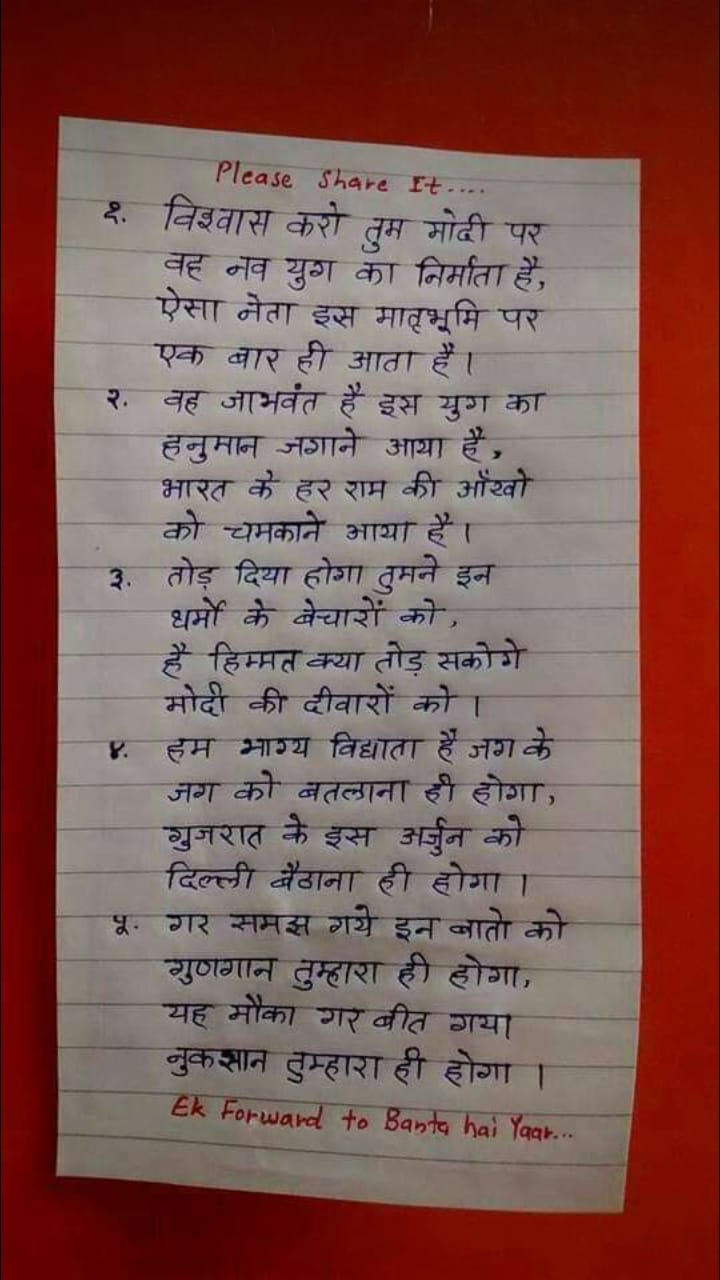 Please Share It....
१. विश्वास करो तुम मोदी पर
वह नव युग का निर्माता है,
ऐसा नेता इस मातृभूमि पर
एक बार ही आता है।
२. वह जाभवंत है इस युग का
हनुमान जगाने आया है,
भारत के हर राम की आँखो
को चमकाने आया है।
३. तोड़ दिया होगा तुमने इन
धर्मो के बेचारों को,
है हिम्मत क्या तोड़ सकोगे
मोदी की दीवारों को।
४. हम भाग्य विद्याता है जग के
जग को बतलाना ही होगा,
गुजरात के इस अर्जुन को
दिल्ली बैठाना ही होगा।
५. गर समझ गये इन बातो को
गुणगान तुम्हारा ही होगा,
यह मौका गर बीत गया
नुकसान तुम्हारा ही होगा।
Ek Forward to Banta hai Yaar...